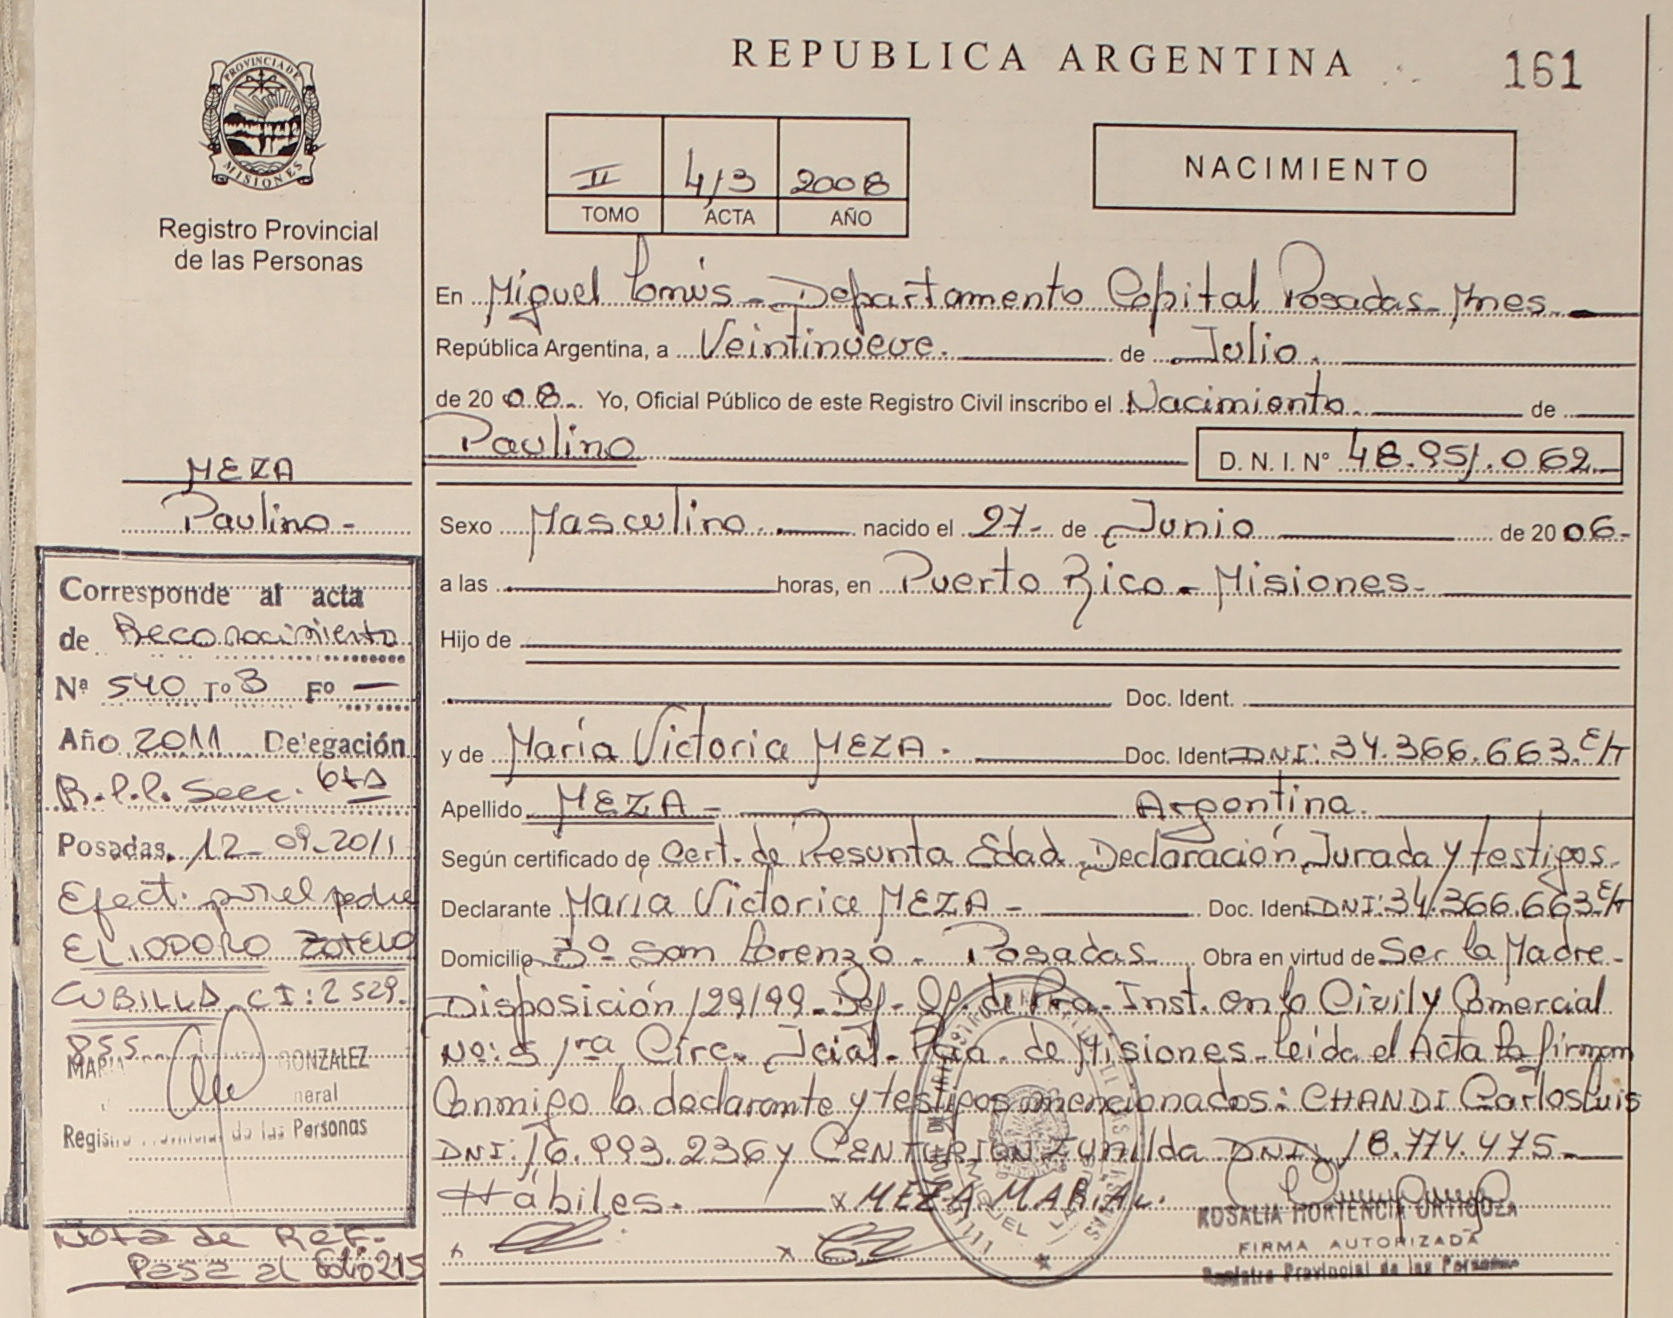 PROVINCIA DE
MISIONES
Registro Provincial
de las Personas
REPUBLICA ARGENTINA
161
II 4/3 2008
TOMO ACTA AÑO
NACIMIENTO
En Miguel Lanús - Departamento Capital Posadas - Mnes.
República Argentina, a Veintinueve. de Julio.
de 20 08. Yo, Oficial Público de este Registro Civil inscribo el Nacimiento de
Paulino
D. N. I. N° 48.951.062
Sexo Masculino. nacido el 27 - de Junio de 20 06 -
a las horas, en Puerto Rico - Misiones -
Hijo de
Doc. Ident.
y de María Victoria MEZA. Doc. Ident DNI: 34.366.663. E/T
Apellido MEZA - Argentina.
Según certificado de Cert. de Presunta Edad, Declaración Jurada y testigos.
Declarante María Victoria MEZA - Doc. Iden DNI: 34.366.663 E/T
Domicilio B° San Lorenzo - Posadas Obra en virtud de Ser la Madre -
Disposición 129/99 - Def. Of. de Pra. Inst. en lo Civil y Comercial
No: 5 1ra Circ. Jcial - Pcia. de Misiones - leída el Acta la firman
Conmigo la declarante y testigos mencionados: CHANDI Carlos Luis
DNI: 16.993.236 y CENTURION Zunilda DNI 18.774.475 -
Hábiles. x MEZA MARIA.
x x
ROSALIA HORTENCIA ORTIGOZA
FIRMA AUTORIZADA
Registro Provincial de las Personas
MEZA
Paulino -
Corresponde al acta
de Reconocimiento
Nª 540 T° 3 F° —
Año 2011 Delegación
R.P.P. Secc. 6ta
Posadas, 12-09-2011
Efect. por el padre
ELIODORO ZOTELO
CUBILLA CI: 2529.
PSS.
MARIA GONZALEZ
neral
Registro Provincial de las Personas
Nota de Ref.
Pasa al Folio 215